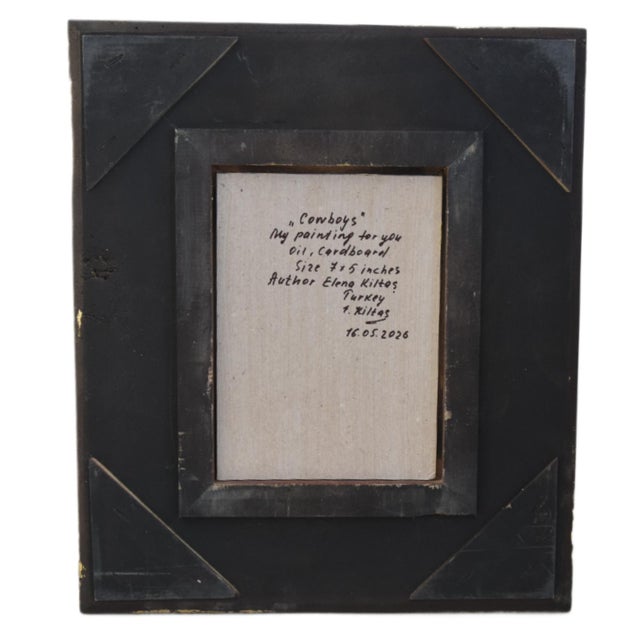 „Cowboys"
My painting for you
Oil, Cardboard
Size 7x5 inches
Author Elena Kiltaş
Turkey
Kiltaş
16.05.2026